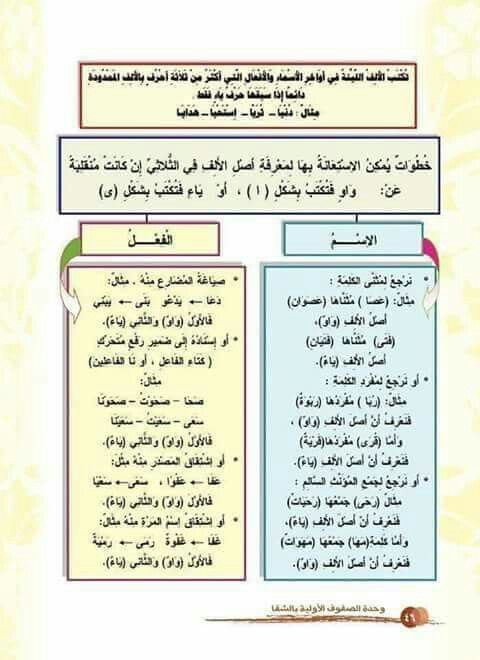 تُكتَبُ الأَلِفُ اللَّيِّنَةُ فِي أَوَاخِرِ الأَسْمَاءِ وَالأَفْعَالِ الَّتِي أَكْثَرُ مِنْ ثَلَاثَةِ أَحْرُفٍ بِالأَلِفِ المَمْدُودَةِ
دَائِماً إِذَا سَبَقَهَا حَرْفُ يَاءٍ فَقَط .
مِثَالُ : دُنْيَا – ثُرَيَّا – إِسْتَحْيَا – هَدَايَا
خُطُوَاتٌ يُمكِنُ الاِسْتِعَانَةُ بِهَا لِمَعْرِفَةِ أَصْلِ الأَلِفِ فِي الثُّلَاثِيِّ إِنْ كَانَتْ مُنْقَلِبَةً
عَنْ: وَاوٍ فَتُكْتَبُ بِشَكْلِ ( ا ) ، أَوْ يَاءٍ فَتُكْتَبُ بِشَكْلِ (ى)
الاِسْــمُ
نَرْجِعُ لِمُثَنَّى الكَلِمَةِ :
مِثَالُ: (عَصَا ) مُثَنَّاهَا (عَصَوَان)
أَصْلُ الأَلِفِ (وَاوٌ).
(فَتَى) مُثَنَّاهَا (فَتَيَان)
أَصْلُ الأَلِفِ (يَاءٌ).
أَو نَرْجِعُ لِمُفْرَدِ الكَلِمَةِ :
مِثَالُ: ( رُبَا ) مُفْرَدُهَا (رَبْوَةٌ)
فَنَعْرِفُ أَنَّ أَصْلَ الأَلِفِ (وَاوٌ) ،
وَأَمَّا (قُرَى) مُفْرَدُهَا(قَرْيَةٌ)
فَنَعْرِفُ أَنَّ أَصْلَ الأَلِفِ (يَاءٌ).
أَو نَرْجِعُ لِجَمْعِ المُؤَنَّثِ السَّالِمِ :
مِثَالُ (رَحَى) جَمْعُهَا (رَحَيَات)
فَنَعْرِفُ أَنَّ أَصْلَ الأَلِفِ (يَاءٌ).
وَأَمَّا كَلِمَةُ(مَهَا) جَمْعُهَا (مَهَوَات)
فَنَعْرِفُ أَنَّ أَصْلَ الأَلِفِ (وَاوٌ).
الْفِعْــلُ
صِيَاغَةُ المُضَارِعِ مِنْهُ . مِثَالُ:
دَعَا ← يَدْعُو بَنَى ← يَبْنِي
فَالأَوَّلُ (وَاوٌ) وَالثَّانِي (يَاءٌ).
أَو إِسْنَادُهُ إِلَى ضَمِيرِ رَفْعٍ مُتَحَرِّكٍ
( كَتَاءِ الفَاعِلِ ، أَو نَا الفَاعِلِين)
مِثَالُ:
صَحَا – صَحَوْتُ – صَحَوْنَا
سَعَى – سَعَيْتُ – سَعَيْنَا
فَالأَوَّلُ (وَاوٌ) وَالثَّانِي (يَاءٌ).
أَو إِشْتِقَاقُ المَصْدَرِ مِنْهُ مِثْلُ:
عَفَا ← عَفْوًا ، سَعَى ← سَعْيًا
فَالأَوَّلُ (وَاوٌ) وَالثَّانِي (يَاءٌ).
أَو إِشْتِقَاقُ إِسْمِ المَرَّةِ مِنْهُ مِثَالُ:
غَفَا ← غَفْوَةٌ رَمَى ← رَمْيَةٌ
فَالأَوَّلُ (وَاوٌ) وَالثَّانِي (يَاءٌ).
وحدة الصفوف الأولية بالشفا
٤٦